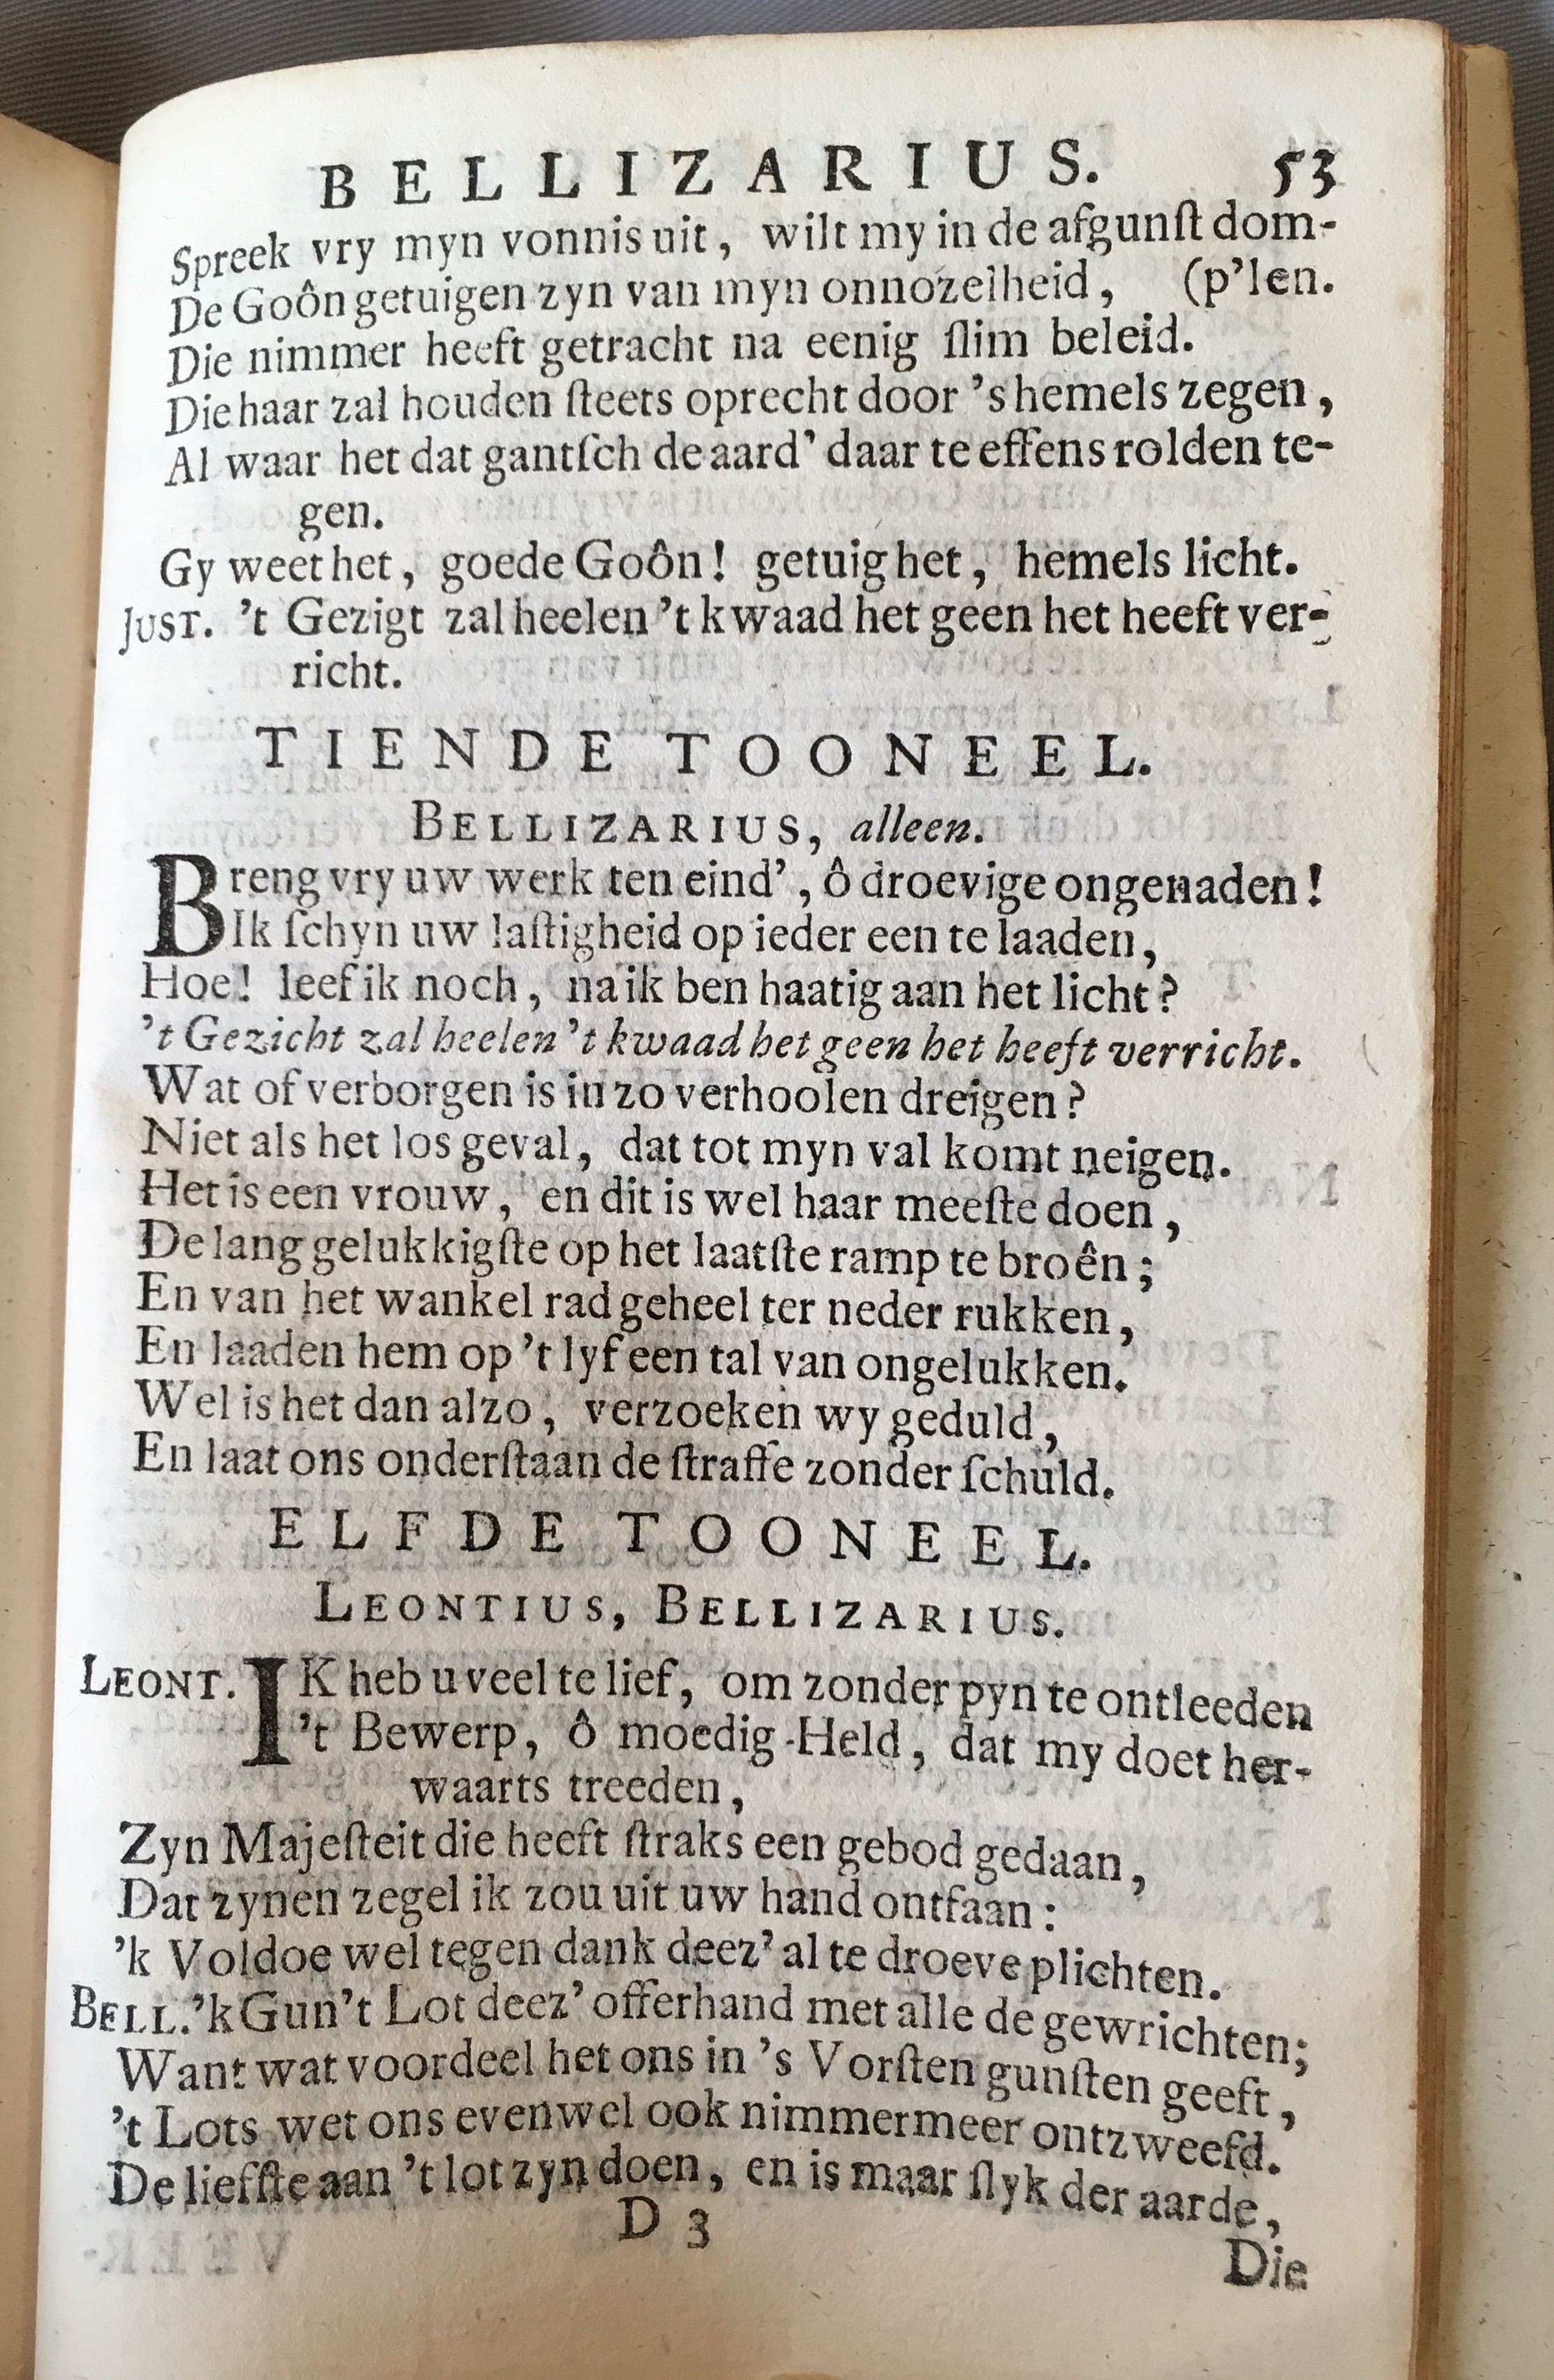 BELLIZARIUS. 53
Spreek vry myn vonnis uit, wilt my in de afgunſt dom-
De Goôn getuigen zyn van myn onnozelheid, (p'len.
Die nimmer heeft getracht na eenig ſlim beleid.
Die haar zal houden ſteets oprecht door 's hemels zegen,
Al waar het dat gantſch de aard' daar te effens rolden te-
gen.
Gy weet het, goede Goôn! getuig het, hemels licht.
JUST. 't Gezigt zal heelen 't kwaad het geen het heeft ver-
richt.
TIENDE TOONEEL.
BELLIZARIUS, alleen.
Breng vry uw werk ten eind', ô droevige ongenaden!
Ik ſchyn uw laſtigheid op ieder een te laaden,
Hoe! leef ik noch, na ik ben haatig aan het licht?
't Gezicht zal heelen 't kwaad het geen het heeft verricht.
Wat of verborgen is in zo verhoolen dreigen?
Niet als het los geval, dat tot myn val komt neigen.
Het is een vrouw, en dit is wel haar meeſte doen,
De lang gelukkigſte op het laatſte ramp te broên;
En van het wankel rad geheel ter neder rukken,
En laaden hem op 't lyf een tal van ongelukken.
Wel is het dan alzo, verzoeken wy geduld,
En laat ons onderſtaan de ſtraffe zonder ſchuld.
ELFDE TOONEEL.
LEONTIUS, BELLIZARIUS.
LEONT. IK heb u veel te lief, om zonder pyn te ontleeden
't Bewerp, ô moedig Held, dat my doet her-
waarts treeden,
Zyn Majeſteit die heeft ſtraks een gebod gedaan,
Dat zynen zegel ik zou uit uw hand ontfaan:
'k Voldoe wel tegen dank deez' al te droeve plichten.
BELL. 'k Gun 't Lot deez' offerhand met alle de gewrichten;
Want wat voordeel het ons in 's Vorſten gunſten geeft,
't Lots wet ons evenwel ook nimmermeer ontzweefd.
De liefſte aan 't lot zyn doen, en is maar ſlyk der aarde,
D 3
Die